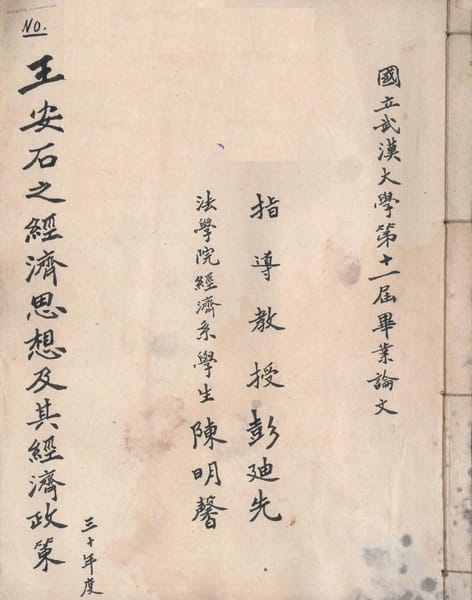 國立武漢大學第十一屆畢業論文
指導教授彭迪先
法學院經濟系學生陳明馨
王安石之經濟思想及其經濟政策
三十年度
No.